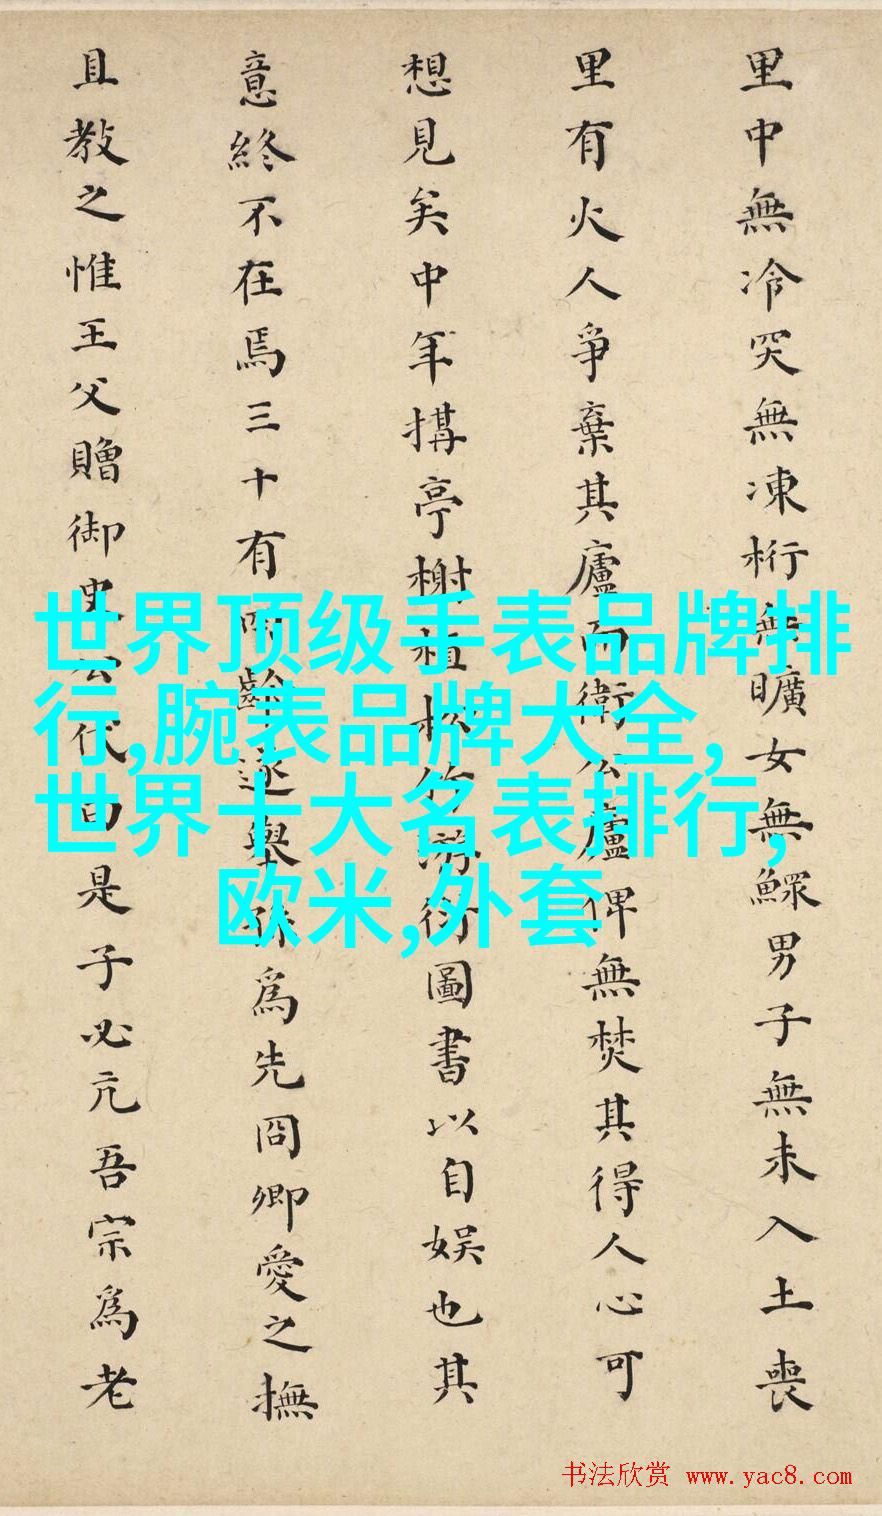 里中無冷突無凍桁無曠女無鰥男子無未入土喪
里有火人爭棄其廬而衛公廬俾無焚其得人心可
想見矣中年搆亭榭植松竹游衍圖書以自娱也其
意終不在焉三十有 齡遂舉孫爲先冏卿愛之撫
且教之惟王父贈御史公代曰是子必亢吾宗爲老
世界顶级手表品牌排
行,腕表品牌大全,
世界十大名表排行,
欧米,外套
书法欣赏 www.yac8.com